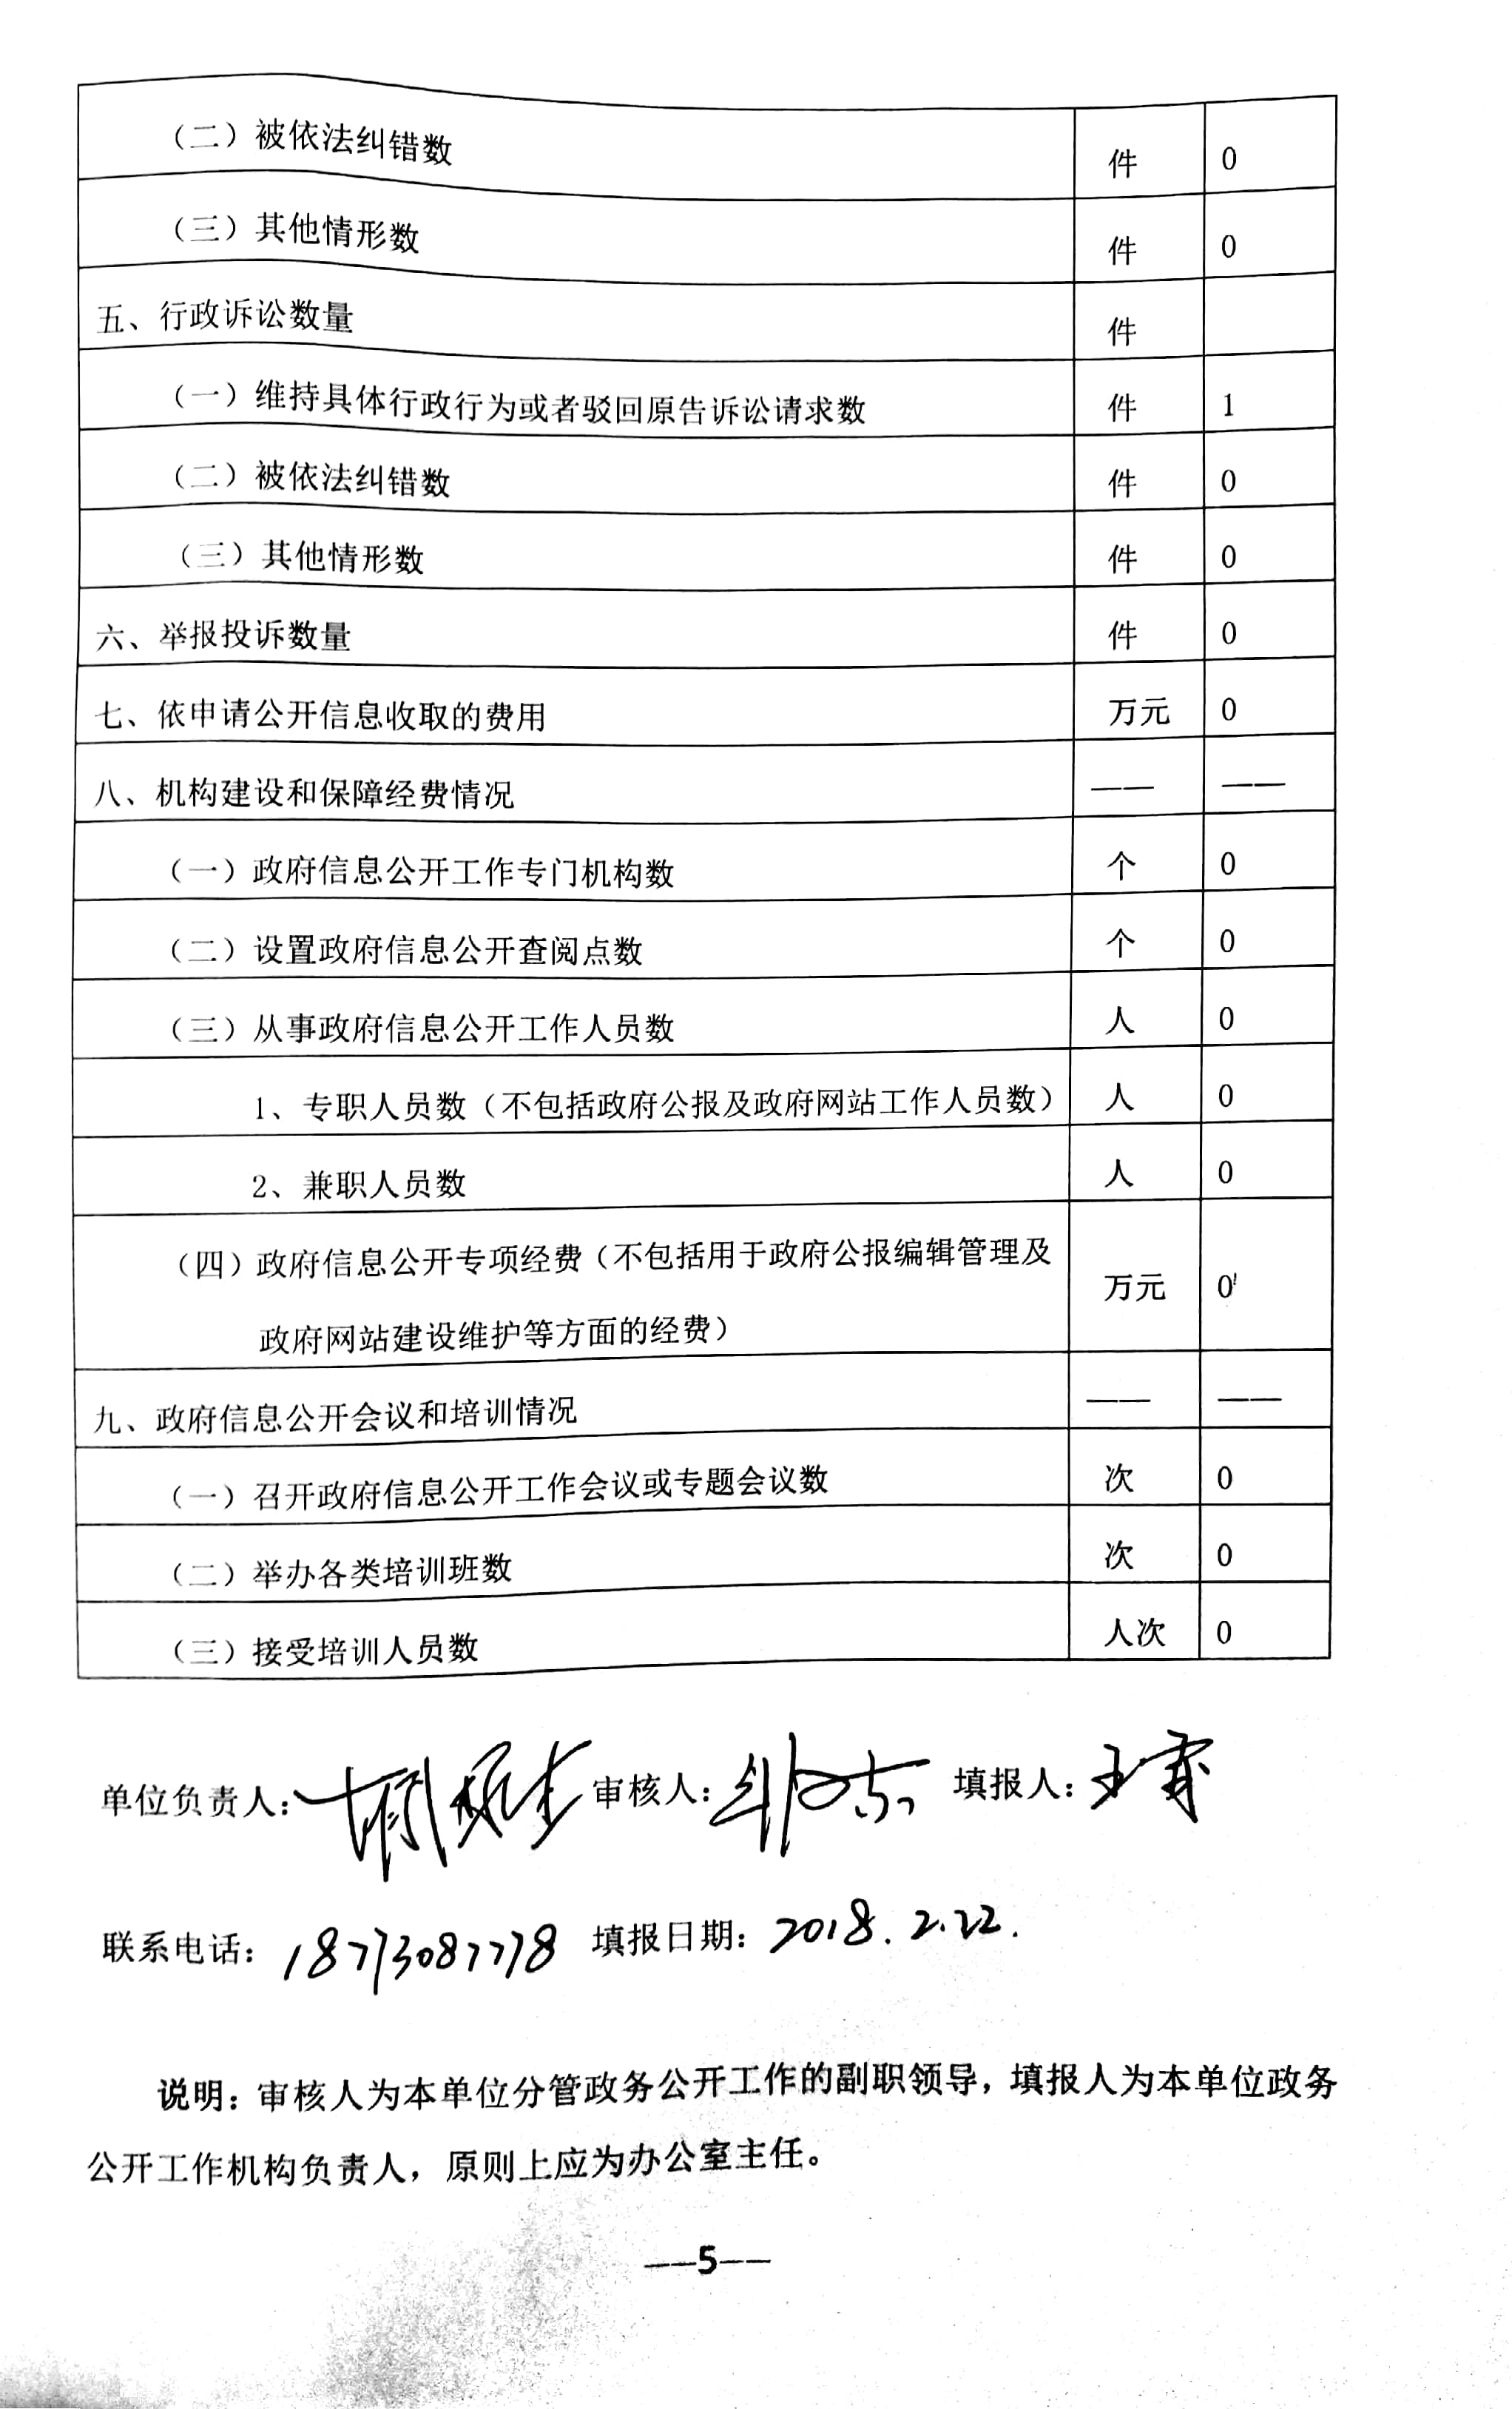 （二）被依法纠错数 件 0
（三）其他情形数 件 0
五、行政诉讼数量 件
（一）维持具体行政行为或者驳回原告诉讼请求数 件 1
（二）被依法纠错数 件 0
（三）其他情形数 件 0
六、举报投诉数量 件 0
七、依申请公开信息收取的费用 万元 0
八、机构建设和保障经费情况 —— ——
（一）政府信息公开工作专门机构数 个 0
（二）设置政府信息公开查阅点数 个 0
（三）从事政府信息公开工作人员数 人 0
1、专职人员数（不包括政府公报及政府网站工作人员数） 人 0
2、兼职人员数 人 0
（四）政府信息公开专项经费（不包括用于政府公报编辑管理及
政府网站建设维护等方面的经费） 万元 0
九、政府信息公开会议和培训情况 —— ——
（一）召开政府信息公开工作会议或专题会议数 次 0
（二）举办各类培训班数 次 0
（三）接受培训人员数 人次 0
单位负责人： 审核人： 填报人：王
联系电话：18773087778 填报日期：2018.2.22.
说明：审核人为本单位分管政务公开工作的副职领导，填报人为本单位政务
公开工作机构负责人，原则上应为办公室主任。
——5——